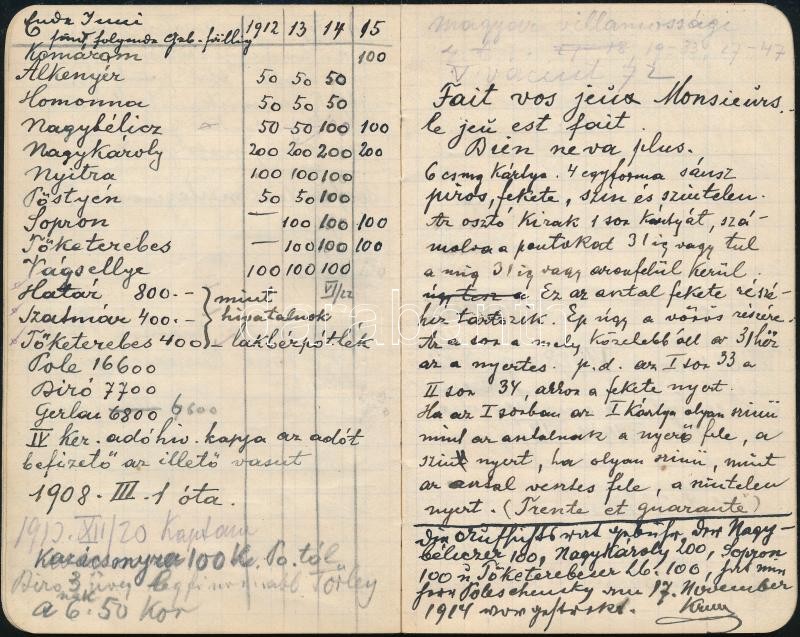 Ende Juni
sind folgende Geb. fällig 1912 13 14 15
Komárom 100
Alkenyér 50 50 50
Homonna 50 50 50
Nagybélicz 50 50 100 100
Nagykároly 200 200 200 200
Nyitra 100 100 100
Pöstyén 50 50 100
Sopron — 100 100 100
Tőketerebes — 100 100 100
Vágsellye 100 100 100
Határ 800.- mint VI/22
Szatmár 400.- hivatalnok
Tőketerebes 400 lakbérpótlék
Pole 16600
Biró 7700
Gerlau 6800 6600
IV Ker. adóhiv. kapja az adót
befizető az illető vasut
1908. III. 1 óta.
1913. XII/20 Kaptam
Karácsonyra 100 K. Po. tól
Biro nak 3 üveg legfinomabb Törley
a 6.50 Kor
magyar villamossági
18 19-33, 27-47
V vacut 72
Fait vos jeux Monsieurs.
le jeu est fait.
Bien ne va plus.
6 csmg Kártya. 4 egyforma sánsz
piros, fekete, szin és szintelen.
Az osztó Kirak 1 sor Kártyát, szá-
molva a pontokat 31ig vagy tul
a mig 31ig vagy azonfelül Kerül.
úgy tesz a Ez az antal fekete részé-
hez tartozik. Ép úgy a vörös részére.
Az a sor a mely Közelebb áll az 31hez
az a nyertes. p.d. az I sor 33 a
II sor 34, akkor a fekete nyert.
Ha az I sorban az I Kártya olyan szinü
mint az antalnak a nyerő fele, a
szint nyert, ha olyan szinü, mint
az antal vesztes fele, a szintelen
nyert. (Trente et quarante)
Nagy-
bélicer 100, Nagykároly 200, Sopron
100 u. Tőketerebeser 100,
Poleschensky am 17. November
1914